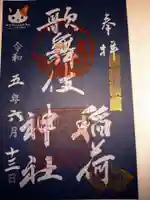 奉拝
歌舞伎
稲荷
神社
令和
五年六月十三日